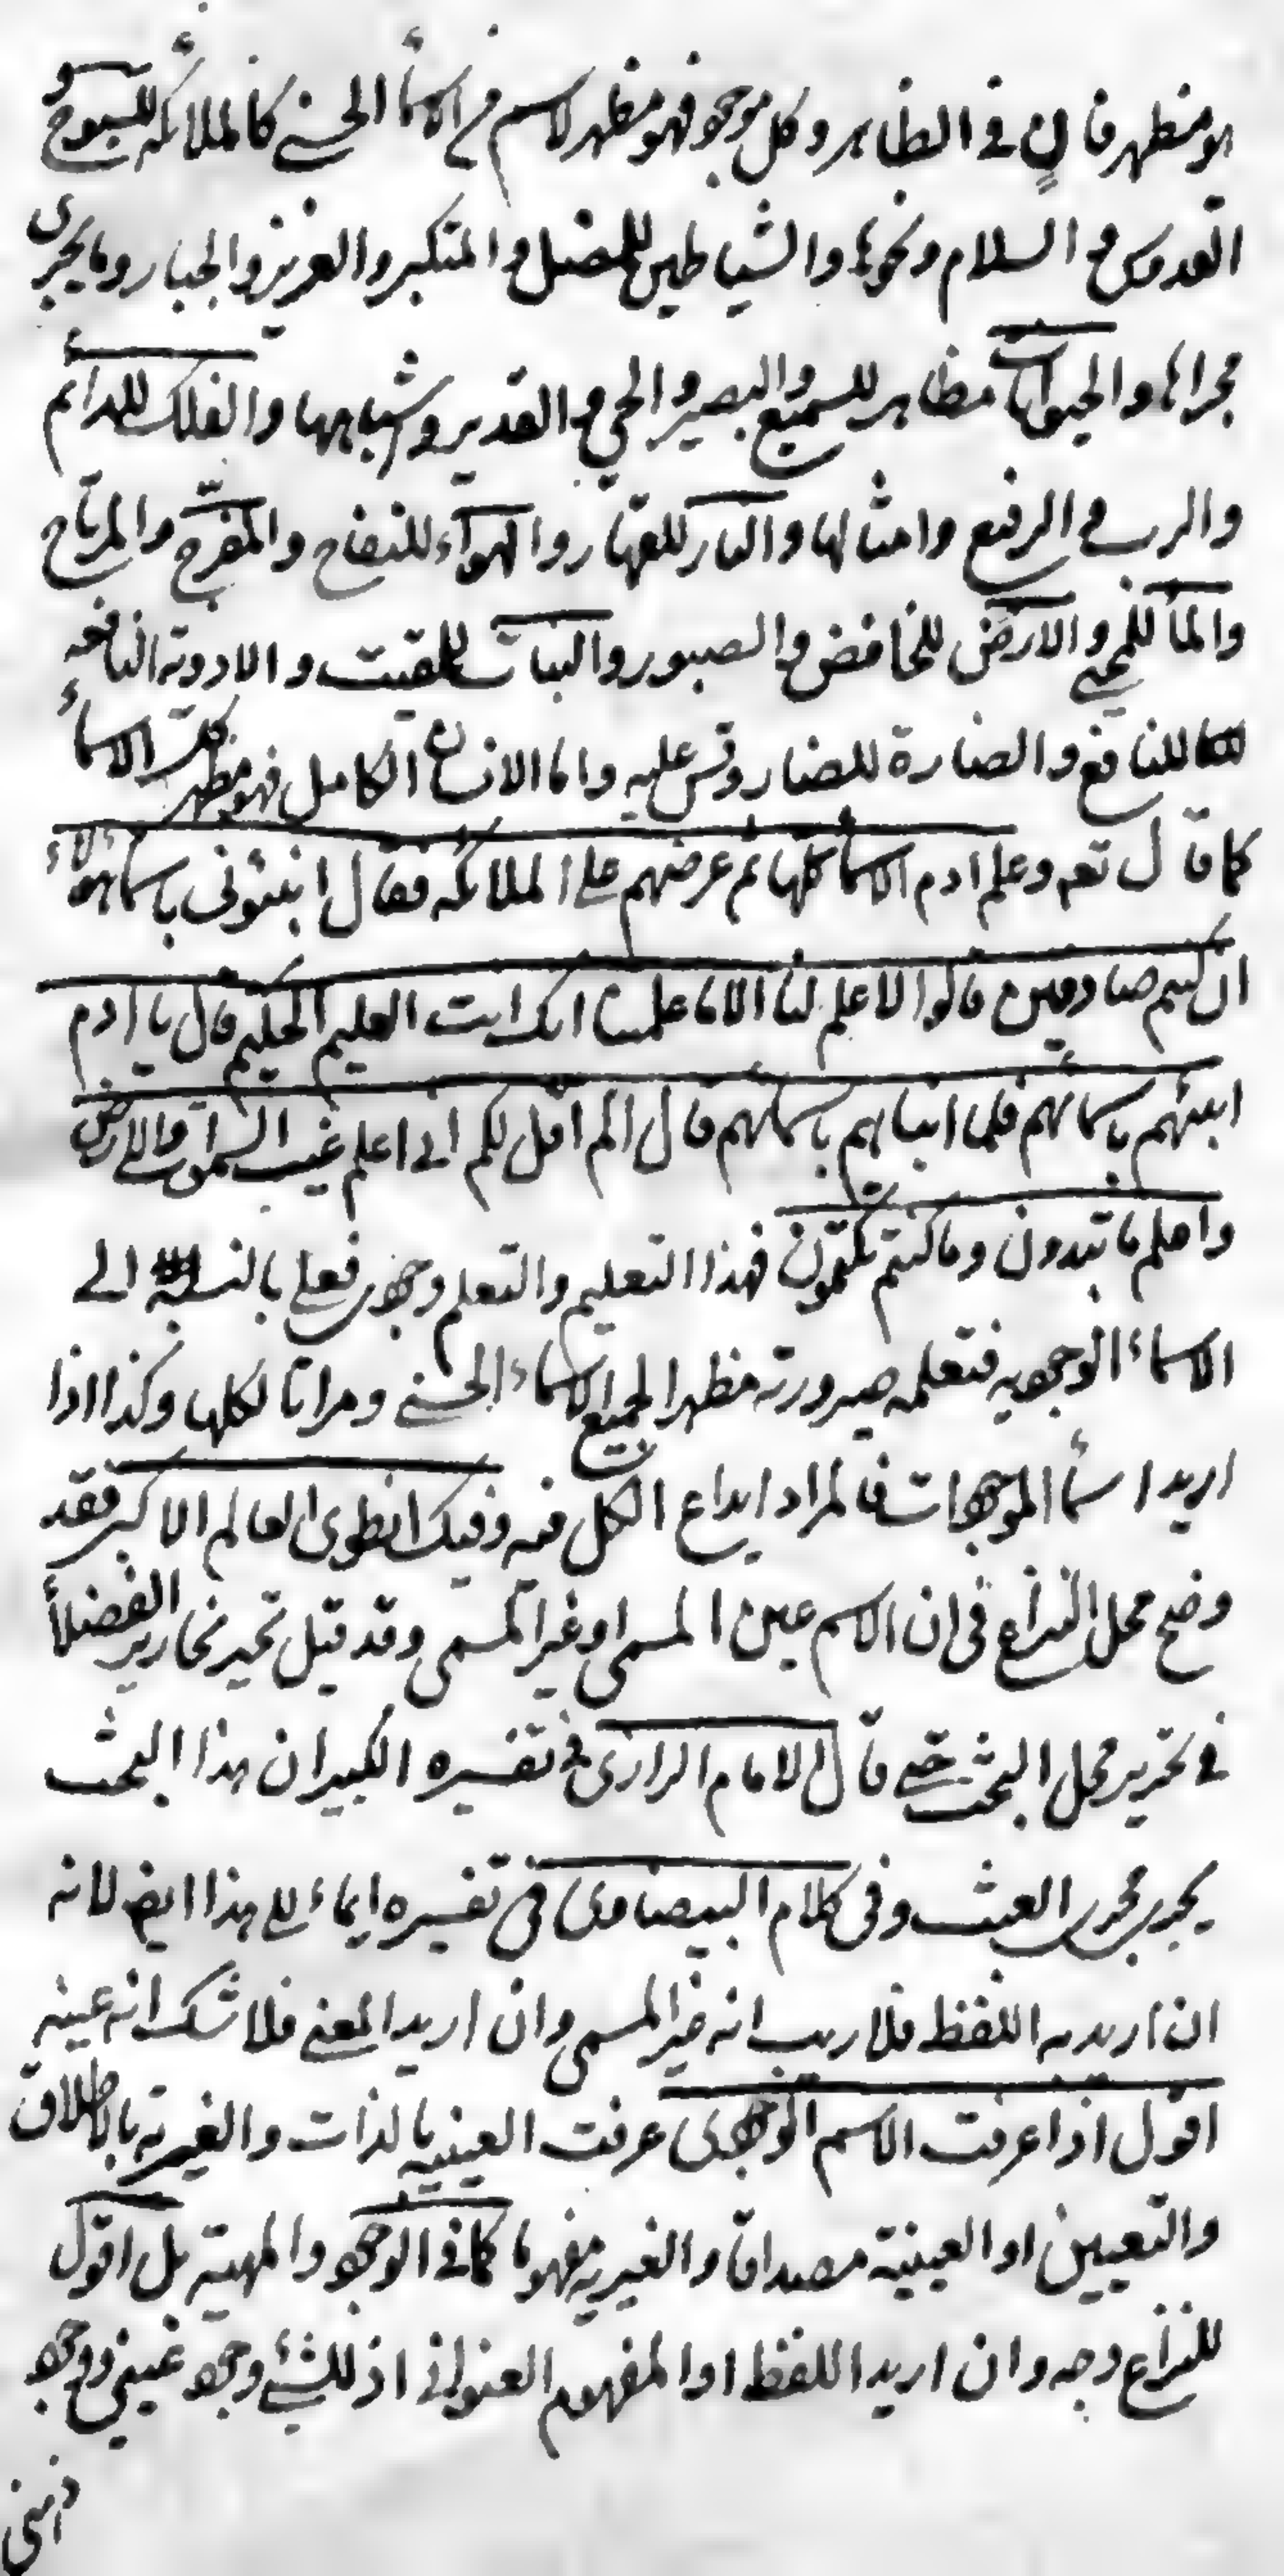 هو مظهر فان في الظاهر وكل موجود فهو مظهر لاسم من الاسمأ الحسنى كالملائكه للسبوح و
القدوس و السلام و نحوها والشياطين للمضل و المتكبر والعزيز والجبار وما يجرى
مجراها والحيوانات مظاهر للسميع والبصير والحي و القدير و شباهها والفلك للدائم
والرب في الرفيع وامثالها والنار للقهار والهواء للنفاح والمفرح والمرتاح
والمأ للمحيي والارض للخافض والصبور والنبات للمقيت والادوية النافعه
للنافع والضارة للضار وقس عليه واما الانسان الكامل فهو مظهر كلية الاسمأ
كما قال تعه وعلم ادم الاسمأ كلها ثم عرضهم على الملائكه فقال انبئونى باسمأ هؤلاء
ان كنتم صادقين قالوا لا علم لنا الا ما علمتنا انك انت العليم الحكيم قال يا ادم
انبئهم باسمائهم فلما انباهم باسمائهم قال الم اقل لكم انى اعلم غيب السموات والارض
واعلم ما تبدون وما كنتم تكتمون فهذا التعليم والتعلم وجودى فعلى بالنسبة الى
الاسماء الوجوديه فتعلمه صيرورته مظهرا لجميع الاسماء الحسنى ومراتا لكلها وكذا اذا
اريد اسمأ الموجودات فالمراد ابداع الكل فيه وفيك انطوى العالم الاكبر فقد
وضح محل النزاع فى ان الاسم عين المسمى او غير المسمى وقد قيل تحير نحارير الفضلأ
فى تحرير محل البحث حتى قال الامام الرازى فى تفسيره الكبير ان هذا البحث
يجرى مجرى العبث وفى كلام البيضاوى فى تفسيره ايماء الى هذا ايض لانه
ان اريد به اللفظ فلا ريب انه غير المسمى وان اريد المعنى فلا شك انه عينه
اقول اذا عرفت الاسم الوجودى عرفت العينيه بالذات والغيريه بالاطلاق
والتعيين او العينية مصداقا والغيريه مفهوما كما فى الوجود والمهية بل اقول
للنزاع وجه وان اريد اللفظ او المفهوم العنوانى اذ للشئ وجود عينى ووجود
ذهنى